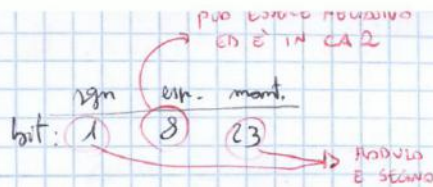 PUÒ ESSERE NEGATIVO
ED È IN CA2
sgn esp. mant.
bit: 1 8 23
MODULO
E SEGNO